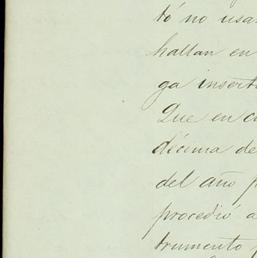 tó no usa
hallan en
ga insert
Que en c
décima de
del año p
procedió a
trumento p